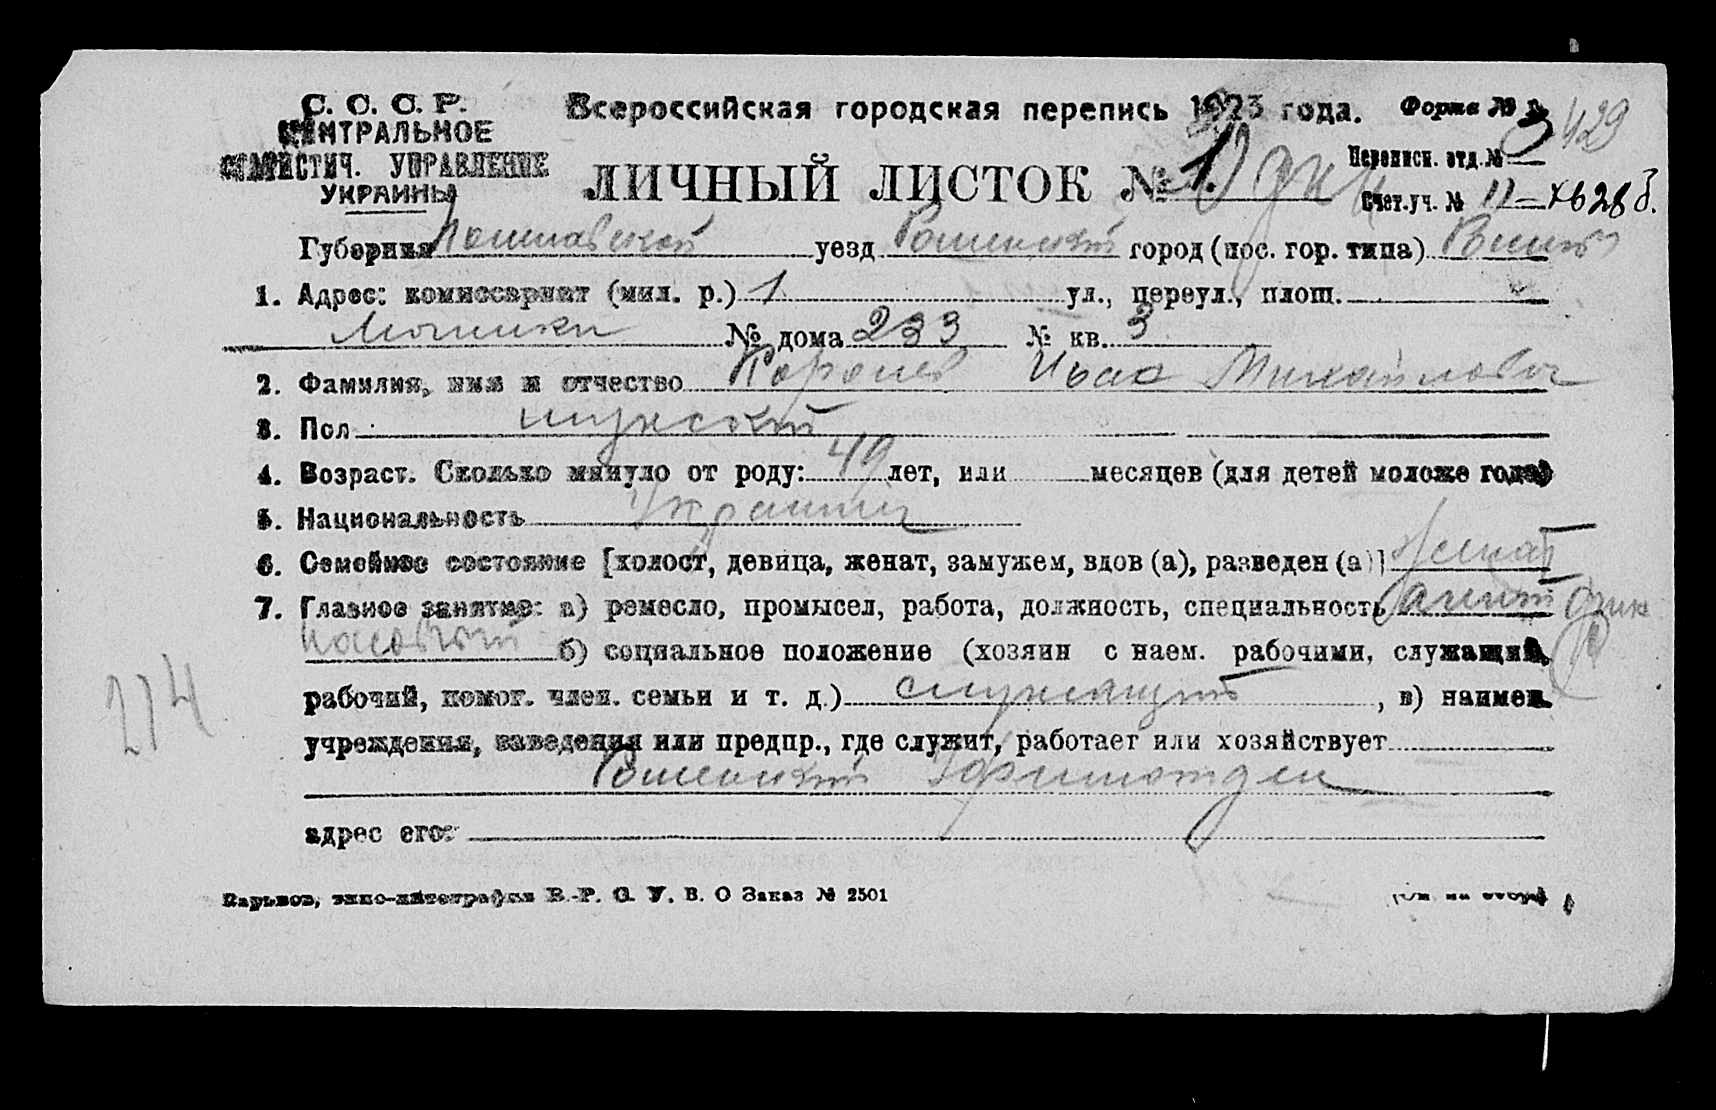 С. С. С. Р.
ЦЕНТРАЛЬНОЕ
СТАТИСТИЧ. УПРАВЛЕНИЕ
УКРАИНЫ
Всероссийская городская перепись 1923 года.
Форма №
429
ЛИЧНЫЙ ЛИСТОК № 1.
Переписн. отд. №
Счет. уч. № 11
Губерния Полтавской уезд Роменский город (пос. гор. типа)
1. Адрес: комиссариат (мил. р.) 1 ул., переул., площ.
№ дома 233 № кв. 3
2. Фамилия, имя и отчество Михайлович
3. Пол мужской
4. Возраст. Сколько минуло от роду: 49 лет, или месяцев (для детей моложе года)
5. Национальность Украинец
6. Семейное состояние [холост, девица, женат, замужем, вдов (а), разведен (а)] женат
7. Главное занятие: а) ремесло, промысел, работа, должность, специальность агент фин
б) социальное положение (хозяин с наем. рабочими, служащий,
рабочий, помог. член. семьи и т. д.) служащий, в) наимен.
учреждения, заведения или предпр., где служит, работает или хозяйствует
Роменский
адрес его:
214
Харьков, типо-литография В.-Р. С. У. В. О Заказ № 2501